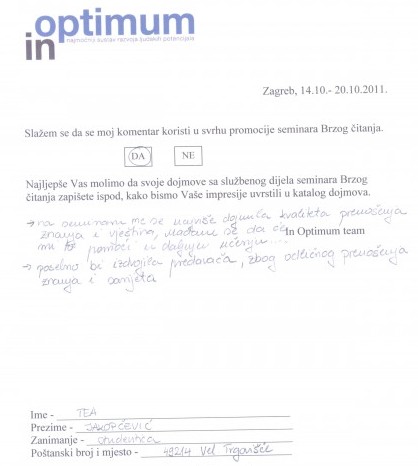 in optimum
najmoćniji sustav razvoja ljudskih potencijala
Zagreb, 14.10.- 20.10.2011.
Slažem se da se moj komentar koristi u svrhu promocije seminara Brzog čitanja.
DA NE
Najljepše Vas molimo da svoje dojmove sa službenog dijela seminara Brzog
čitanja zapišete ispod, kako bismo Vaše impresije uvrstili u katalog dojmova.
→ na seminaru me se najviše dojmila kvaliteta prenošenja
znanja i vještina, nadam se da će
mi to pomoći u daljnjem učenju... In Optimum team
→ posebno bi izdvojila predavača, zbog odličnog prenošenja
znanja i savjeta
Ime - TEA
Prezime - JAKOPČEVIĆ
Zanimanje - studentica
Poštanski broj i mjesto - 49214 Vel Trgovišće